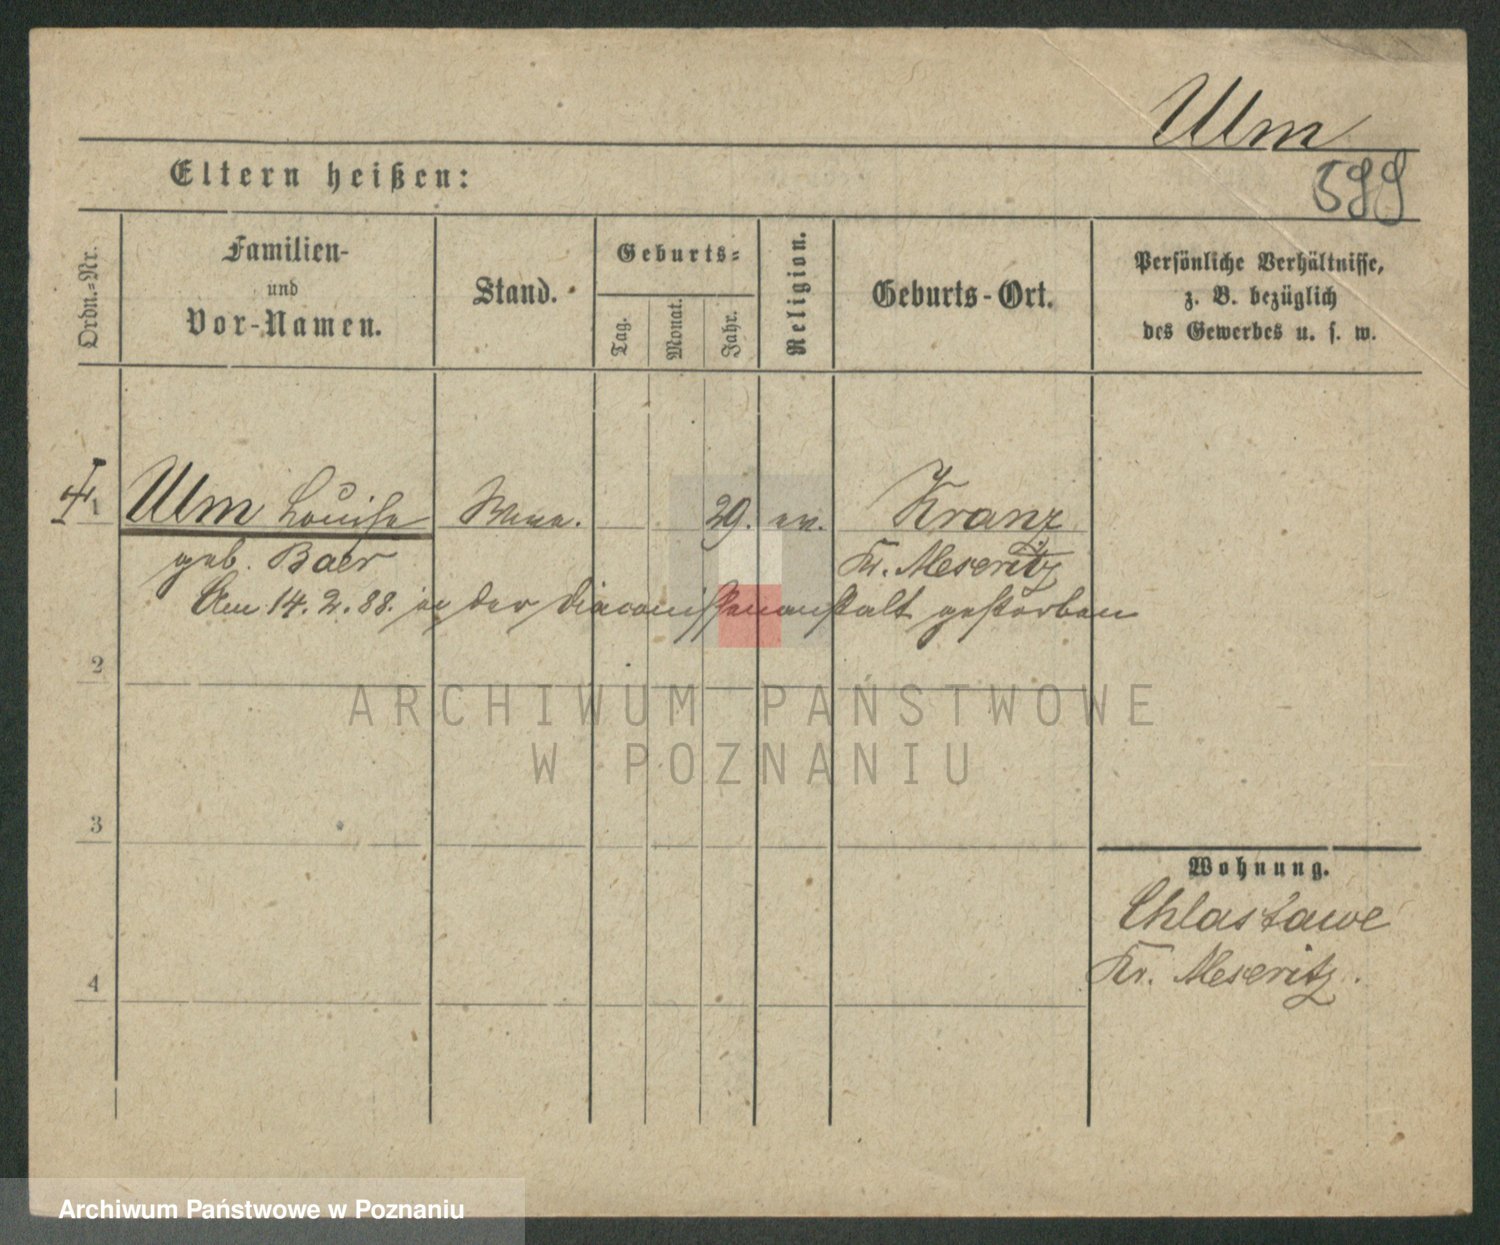 Ulm
599
Eltern heißen:
Ordn.-Nr.
Familien-
und
Vor-Namen.
Stand.
Geburts-
Tag.
Monat.
Jahr.
Religion.
Geburts-Ort.
Persönliche Verhältnisse,
z. B. bezüglich
des Gewerbes u. s. w.
1 Ulm Louise Wwe. 29. ev. Kranz
geb. Baer Kr. Meseritz
Am 14.2.88. in der Diaconissenanstalt gestorben
2
ARCHIWUM PAŃSTWOWE
W POZNANIU
3
Wohnung.
Chlastawe
Kr. Meseritz.
4
Archiwum Państwowe w Poznaniu